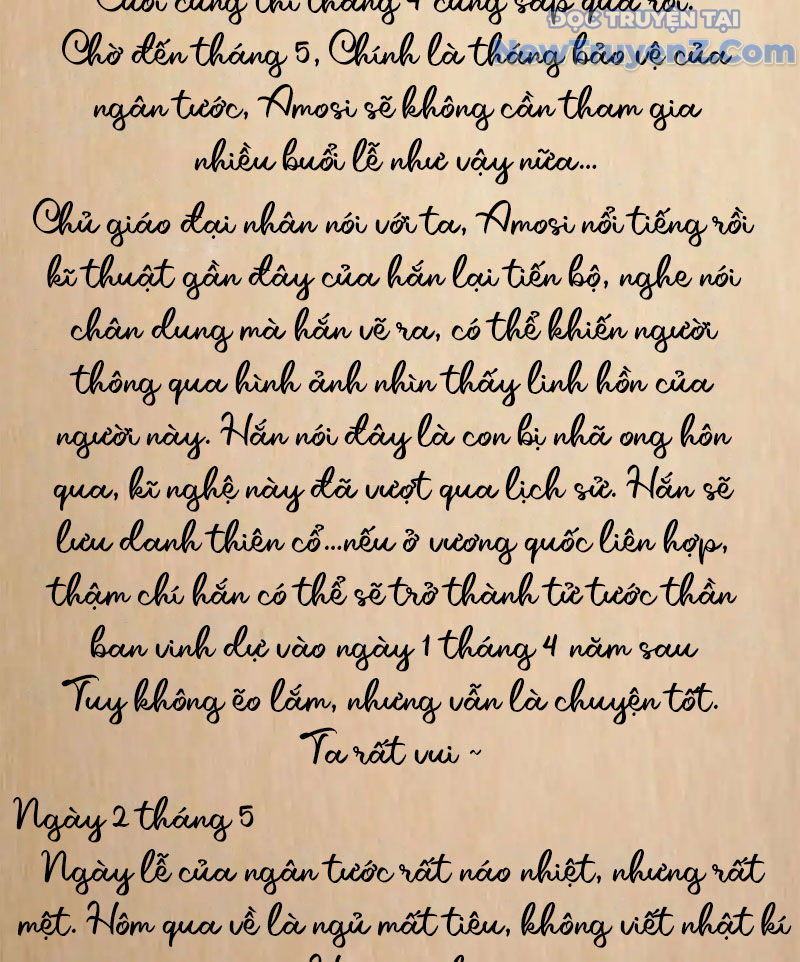 Cuối cùng thì tháng 4 cũng sắp qua rồi.
ĐỌC TRUYỆN TẠI
NewTruyenZ.Com
Chờ đến tháng 5, Chính là tháng bảo vệ của
ngân tước, Amosi sẽ không cần tham gia
nhiều buổi lễ như vậy nữa...
Chủ giáo đại nhân nói với ta, Amosi nổi tiếng rồi
kĩ thuật gần đây của hắn lại tiến bộ, nghe nói
chân dung mà hắn vẽ ra, có thể khiến người
thông qua hình ảnh nhìn thấy linh hồn của
người này. Hắn nói đây là con bị nhã ong hôn
qua, kĩ nghệ này đã vượt qua lịch sử. Hắn sẽ
lưu danh thiên cổ...nếu ở vương quốc liên hợp,
thậm chí hắn có thể sẽ trở thành tử tước thần
ban vinh dự vào ngày 1 tháng 4 năm sau
Tuy không ẽo lắm, nhưng vẫn là chuyện tốt.
Ta rất vui ~
Ngày 2 tháng 5
Ngày lễ của ngân tước rất náo nhiệt, nhưng rất
mệt. Hôm qua về là ngủ mất tiêu, không viết nhật kí